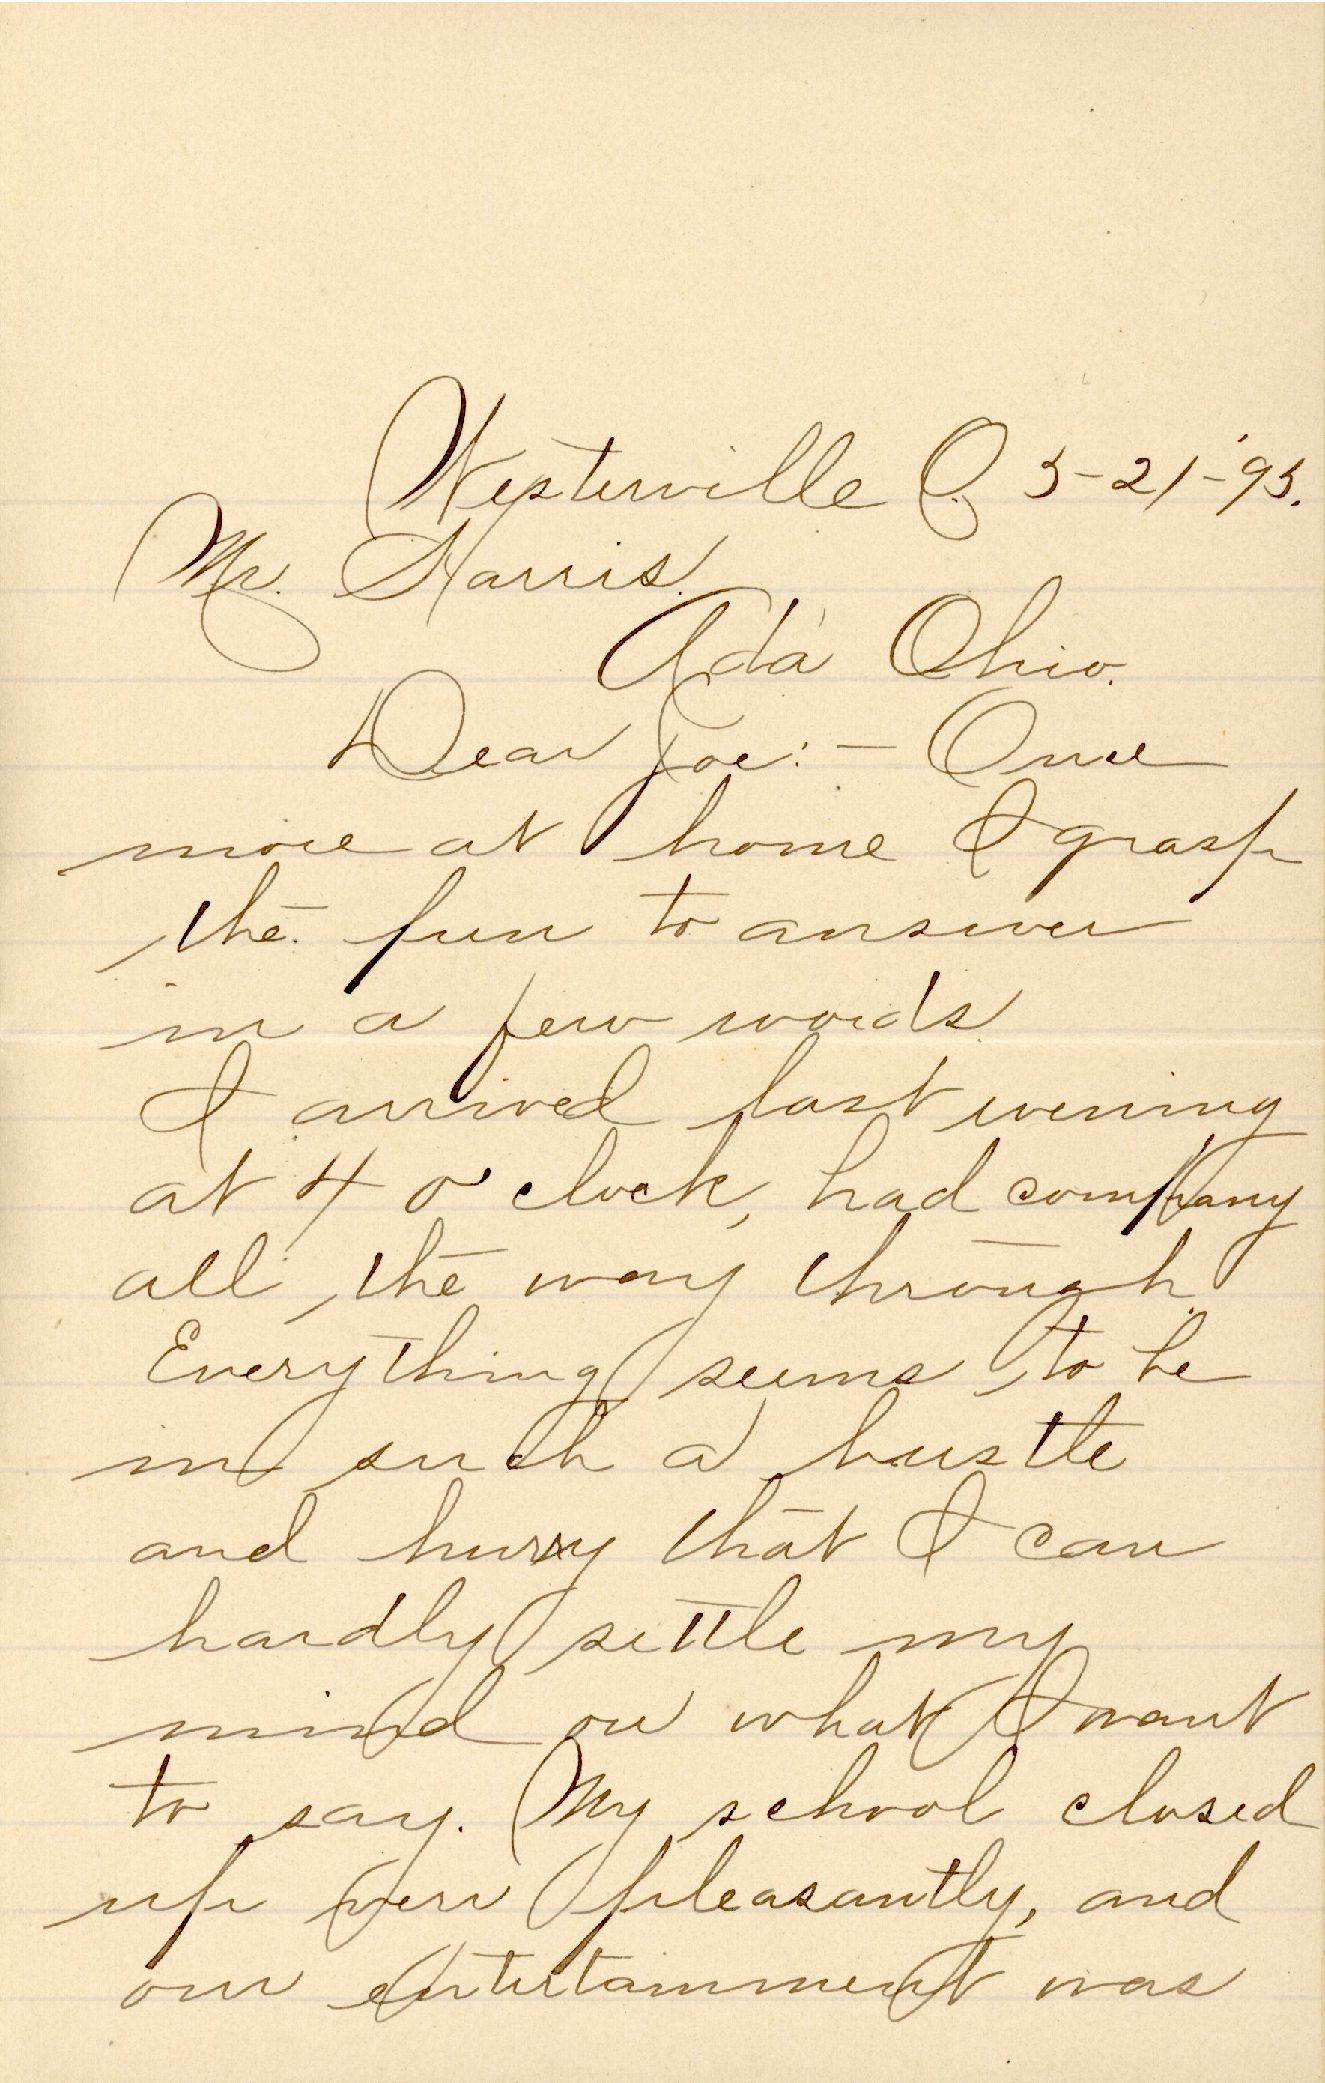 Westerville O. 5-21-'95.
Mr. Harris.
Ada Ohio.
Dear Joe:- Once
more at home I grasp
the pen to answer
in a few words
I arrived last evening
at 4 o'clock, had company
all the way through.
Everything seems to be
in such a bustle
and hurry that I can
hardly settle my
mind on what I want
to say. My school closed
up very pleasantly, and
our entertainment was